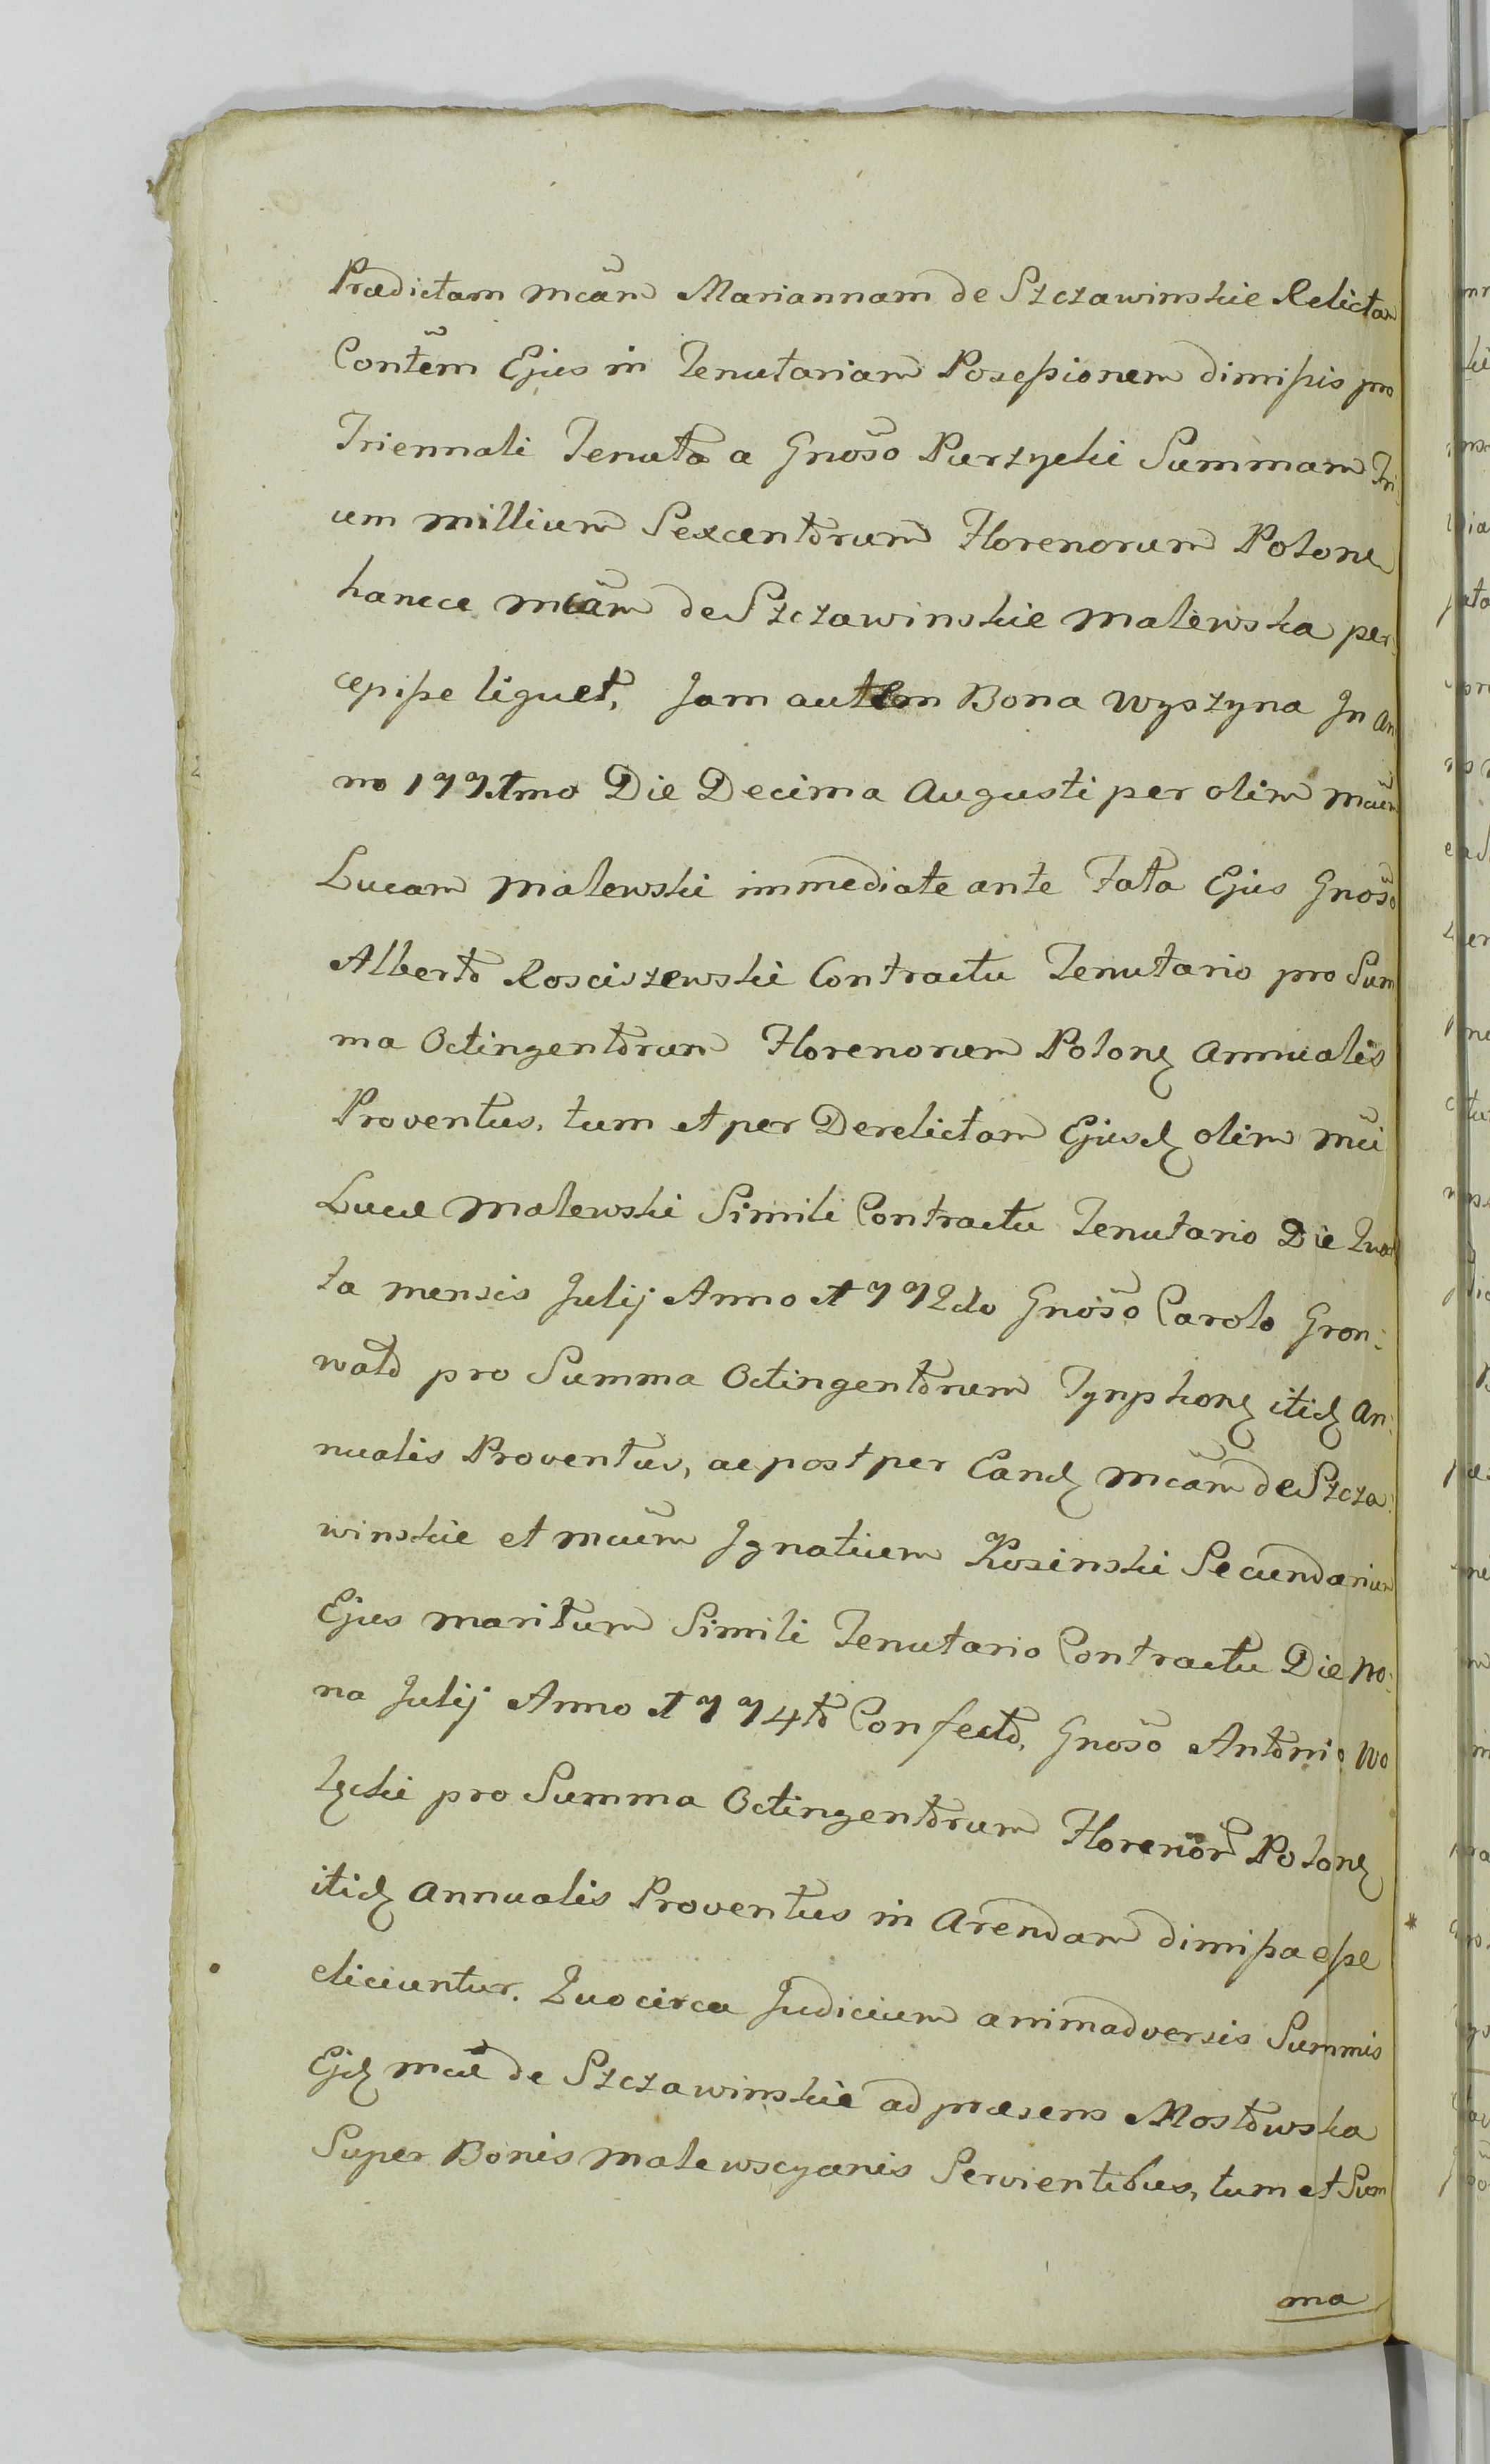 Prædictam mcãm Mariannam de Szczawinskie Relictam
Contẽm Ejus in Tenutariam Possessionem dimissis pro
Triennali Tenuta a Gnoso Purzycki Summam Tri:
um millium Sexcentorum Florenorum Polone
hancce mcãm de Szczawinskie Malewska per:
cepisse liquet, Jam autem Bona Wyszyna In An
no 1771mo Die Decima Augusti per olim mcũm
Lucam Malewski immediate ante Fata Ejus Gnoso
Alberto Rosciszewski Contractu Tenutario pro Sum
ma Octingentorum Florenorum Polonę Annualis
Proventus, tum et per Derelictam Ejusdę olim mci
Lucæ Malewski Simili Contractu Tenutario Die Quar
ta mensis Julij Anno 1772do Gnoso Carolo Gron:
wald pro Summa Octingentorum Tynphonę itidę An:
nualis Proventus, ac post per Eandę mcãm de Szcza:
winskie et mcũm Ignatium Kosinski Secundarium
Ejus maritum Simili Tenutario Contractu Die No:
na Julij Anno 1774to Confecto, Gnoso Antonio Wo
lęcki pro Summa Octingentorum Florenor Polonę
itidę Annualis Proventus in Arendam dimissa esse
eliciuntur. Quocirca Judicium animadversis Summis
Ejdę mcæ de Szczawinskie ad præsens Mostowska
Super Bonis Malewscyanis Servientibus, tum et Sum
ma